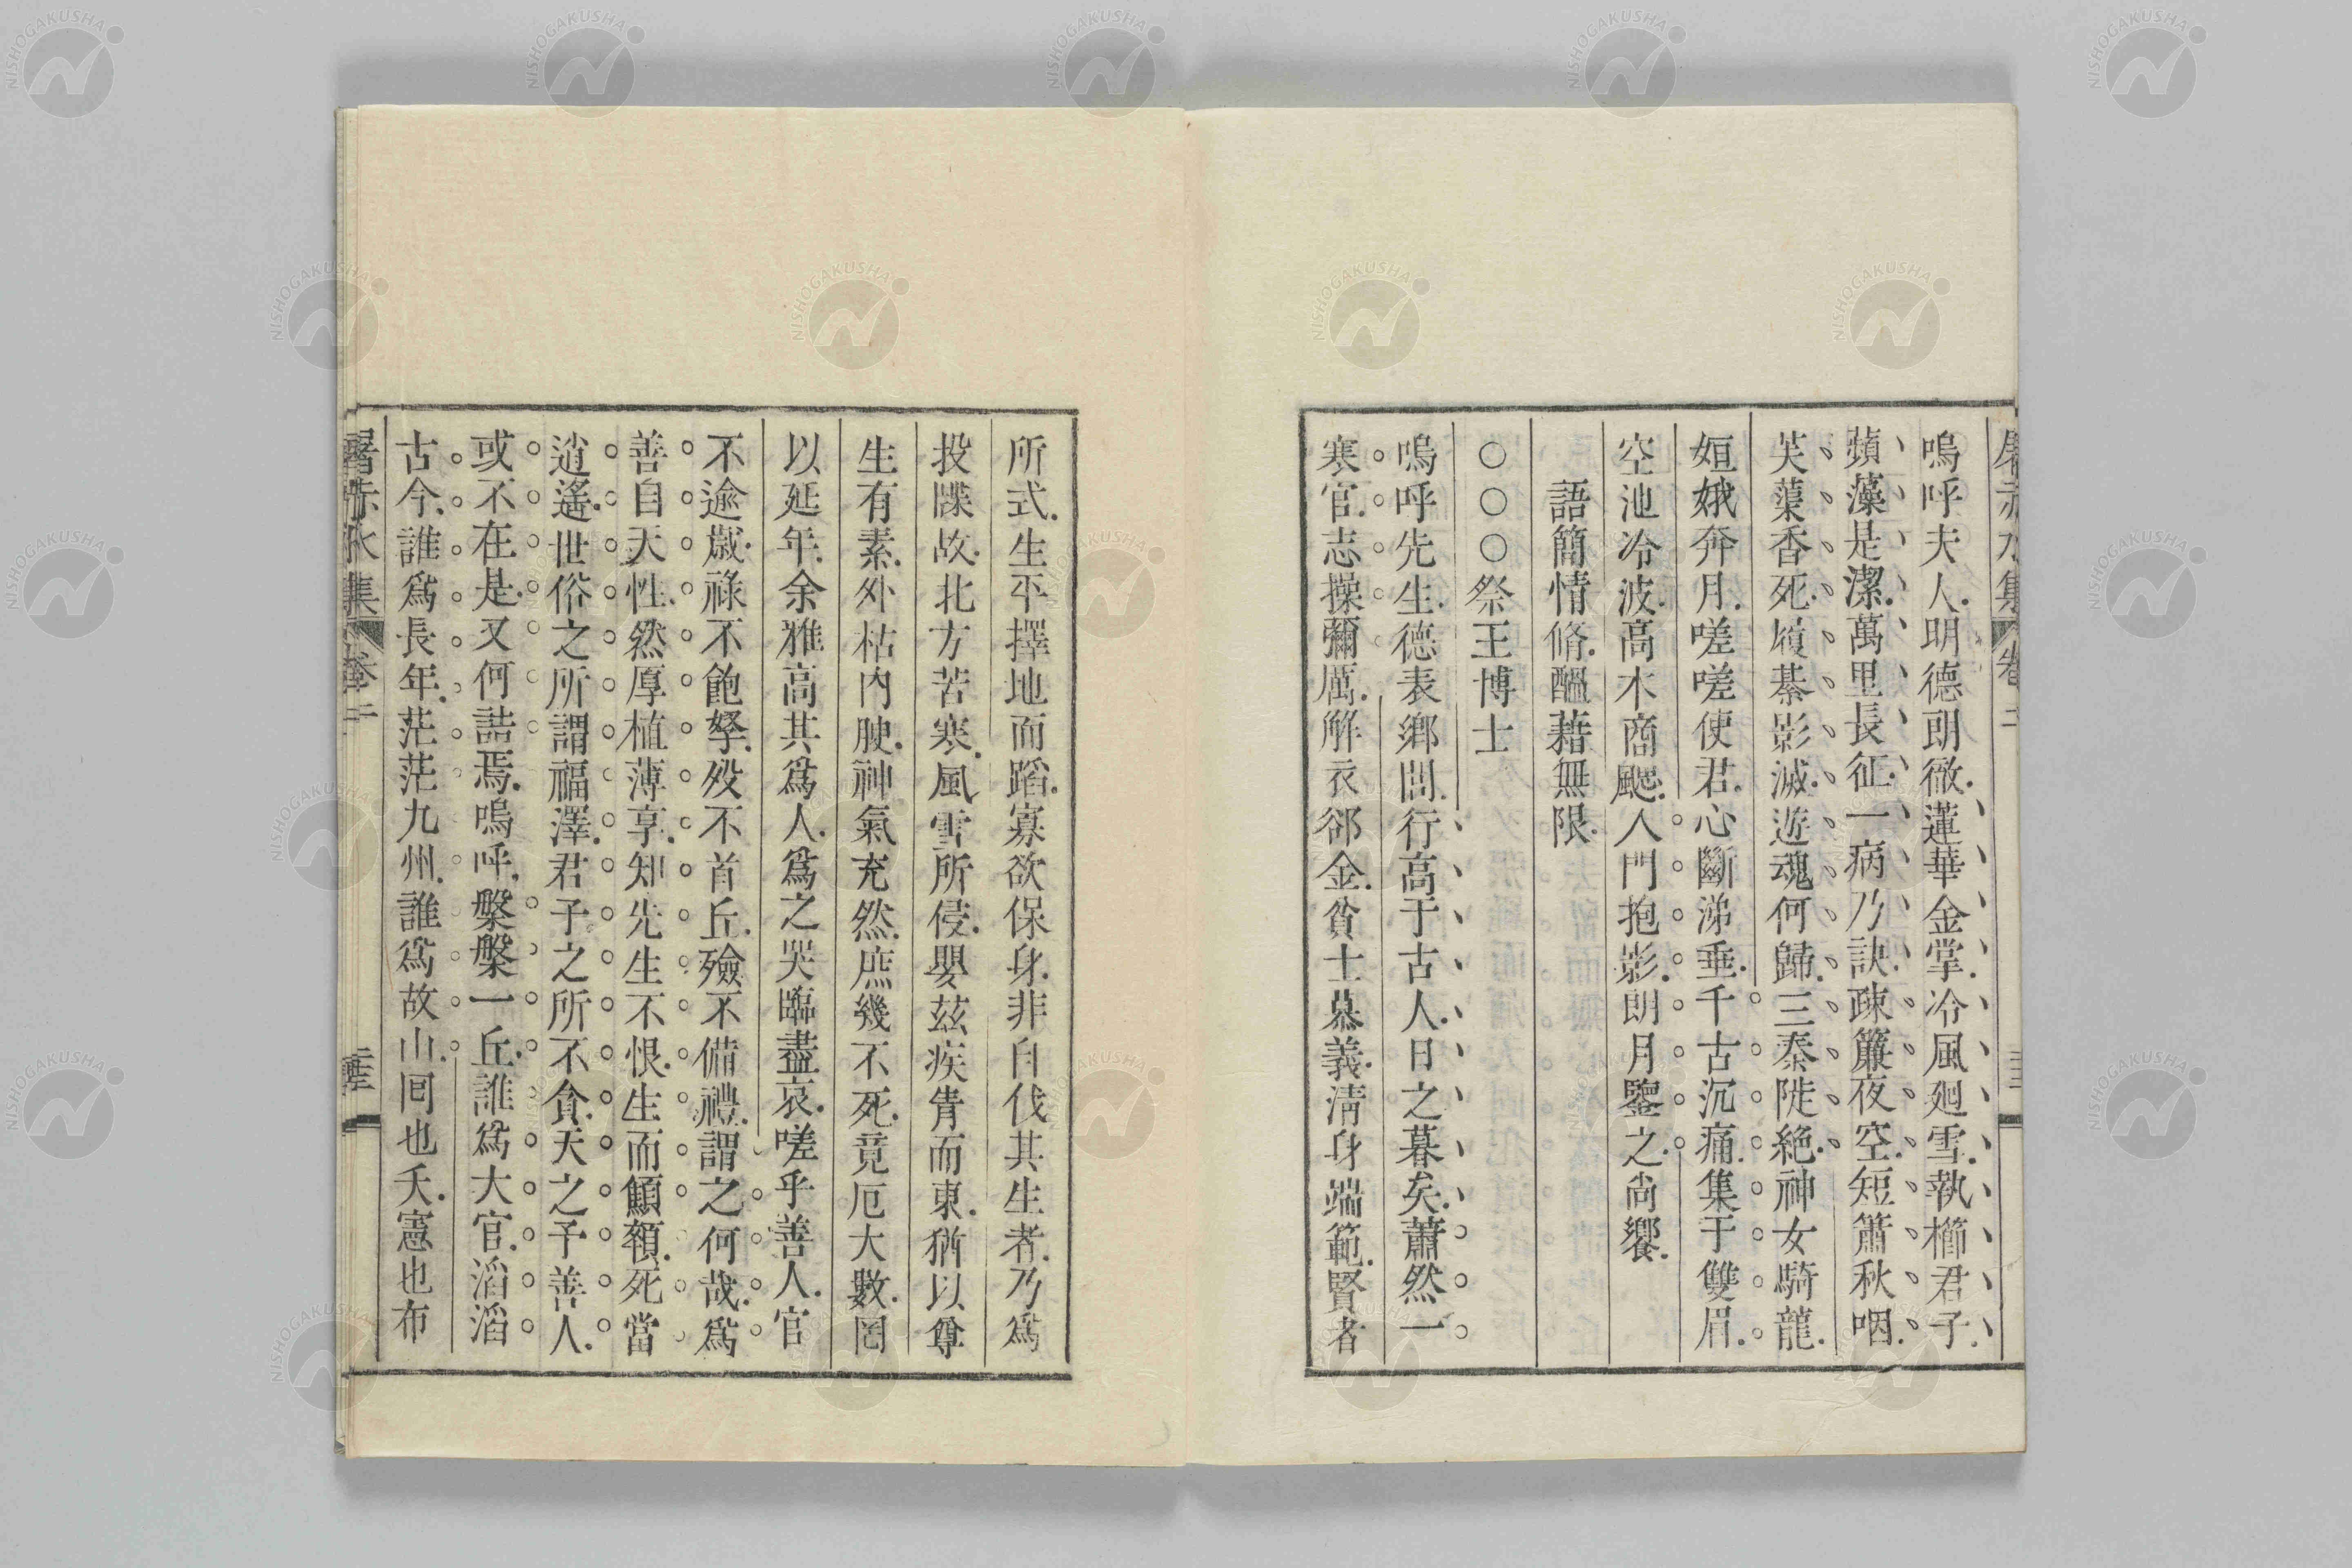 屠赤水集 卷二
嗚呼夫人明德朗徽蓮華金掌冷風廻雪執櫛君子
蘋藻是潔萬里長征一病乃訣疎簾夜空短簫秋咽
芙蕖香死履綦影滅遊魂何歸三秦陡絶神女騎龍
姮娥奔月嗟嗟使君心斷涕垂千古沉痛集于雙眉
空池冷波高木商飔人門抱影朗月鑒之尚饗
語簡情脩醞藉無限
○○○祭王博士
嗚呼先生德表鄉閭行高于古人日之暮矣蕭然一
寒官志操彌厲解衣郤金貧士慕義淸身端範賢者
所式生平擇地而蹈寡欲保身非自伐其生者乃爲
投牒故北方苦寒風雪所侵嬰茲疾眚而東猶以尊
生有素外枯内腴神氣充然庶幾不死竟厄大數罔
以延年余雅高其爲人爲之哭臨盡哀嗟乎善人官
不逾嵗祿不飽孥殁不首丘殮不備禮謂之何哉爲
善自天性然厚植薄享知先生不恨生而顦顇死當
逍遙世俗之所謂福澤君子之所不貪天之予善人
或不在是又何詰焉嗚呼槃槃一丘誰爲大官滔滔
古今誰爲長年茫茫九州誰爲故山囘也夭憲也布
屠赤水集 卷二